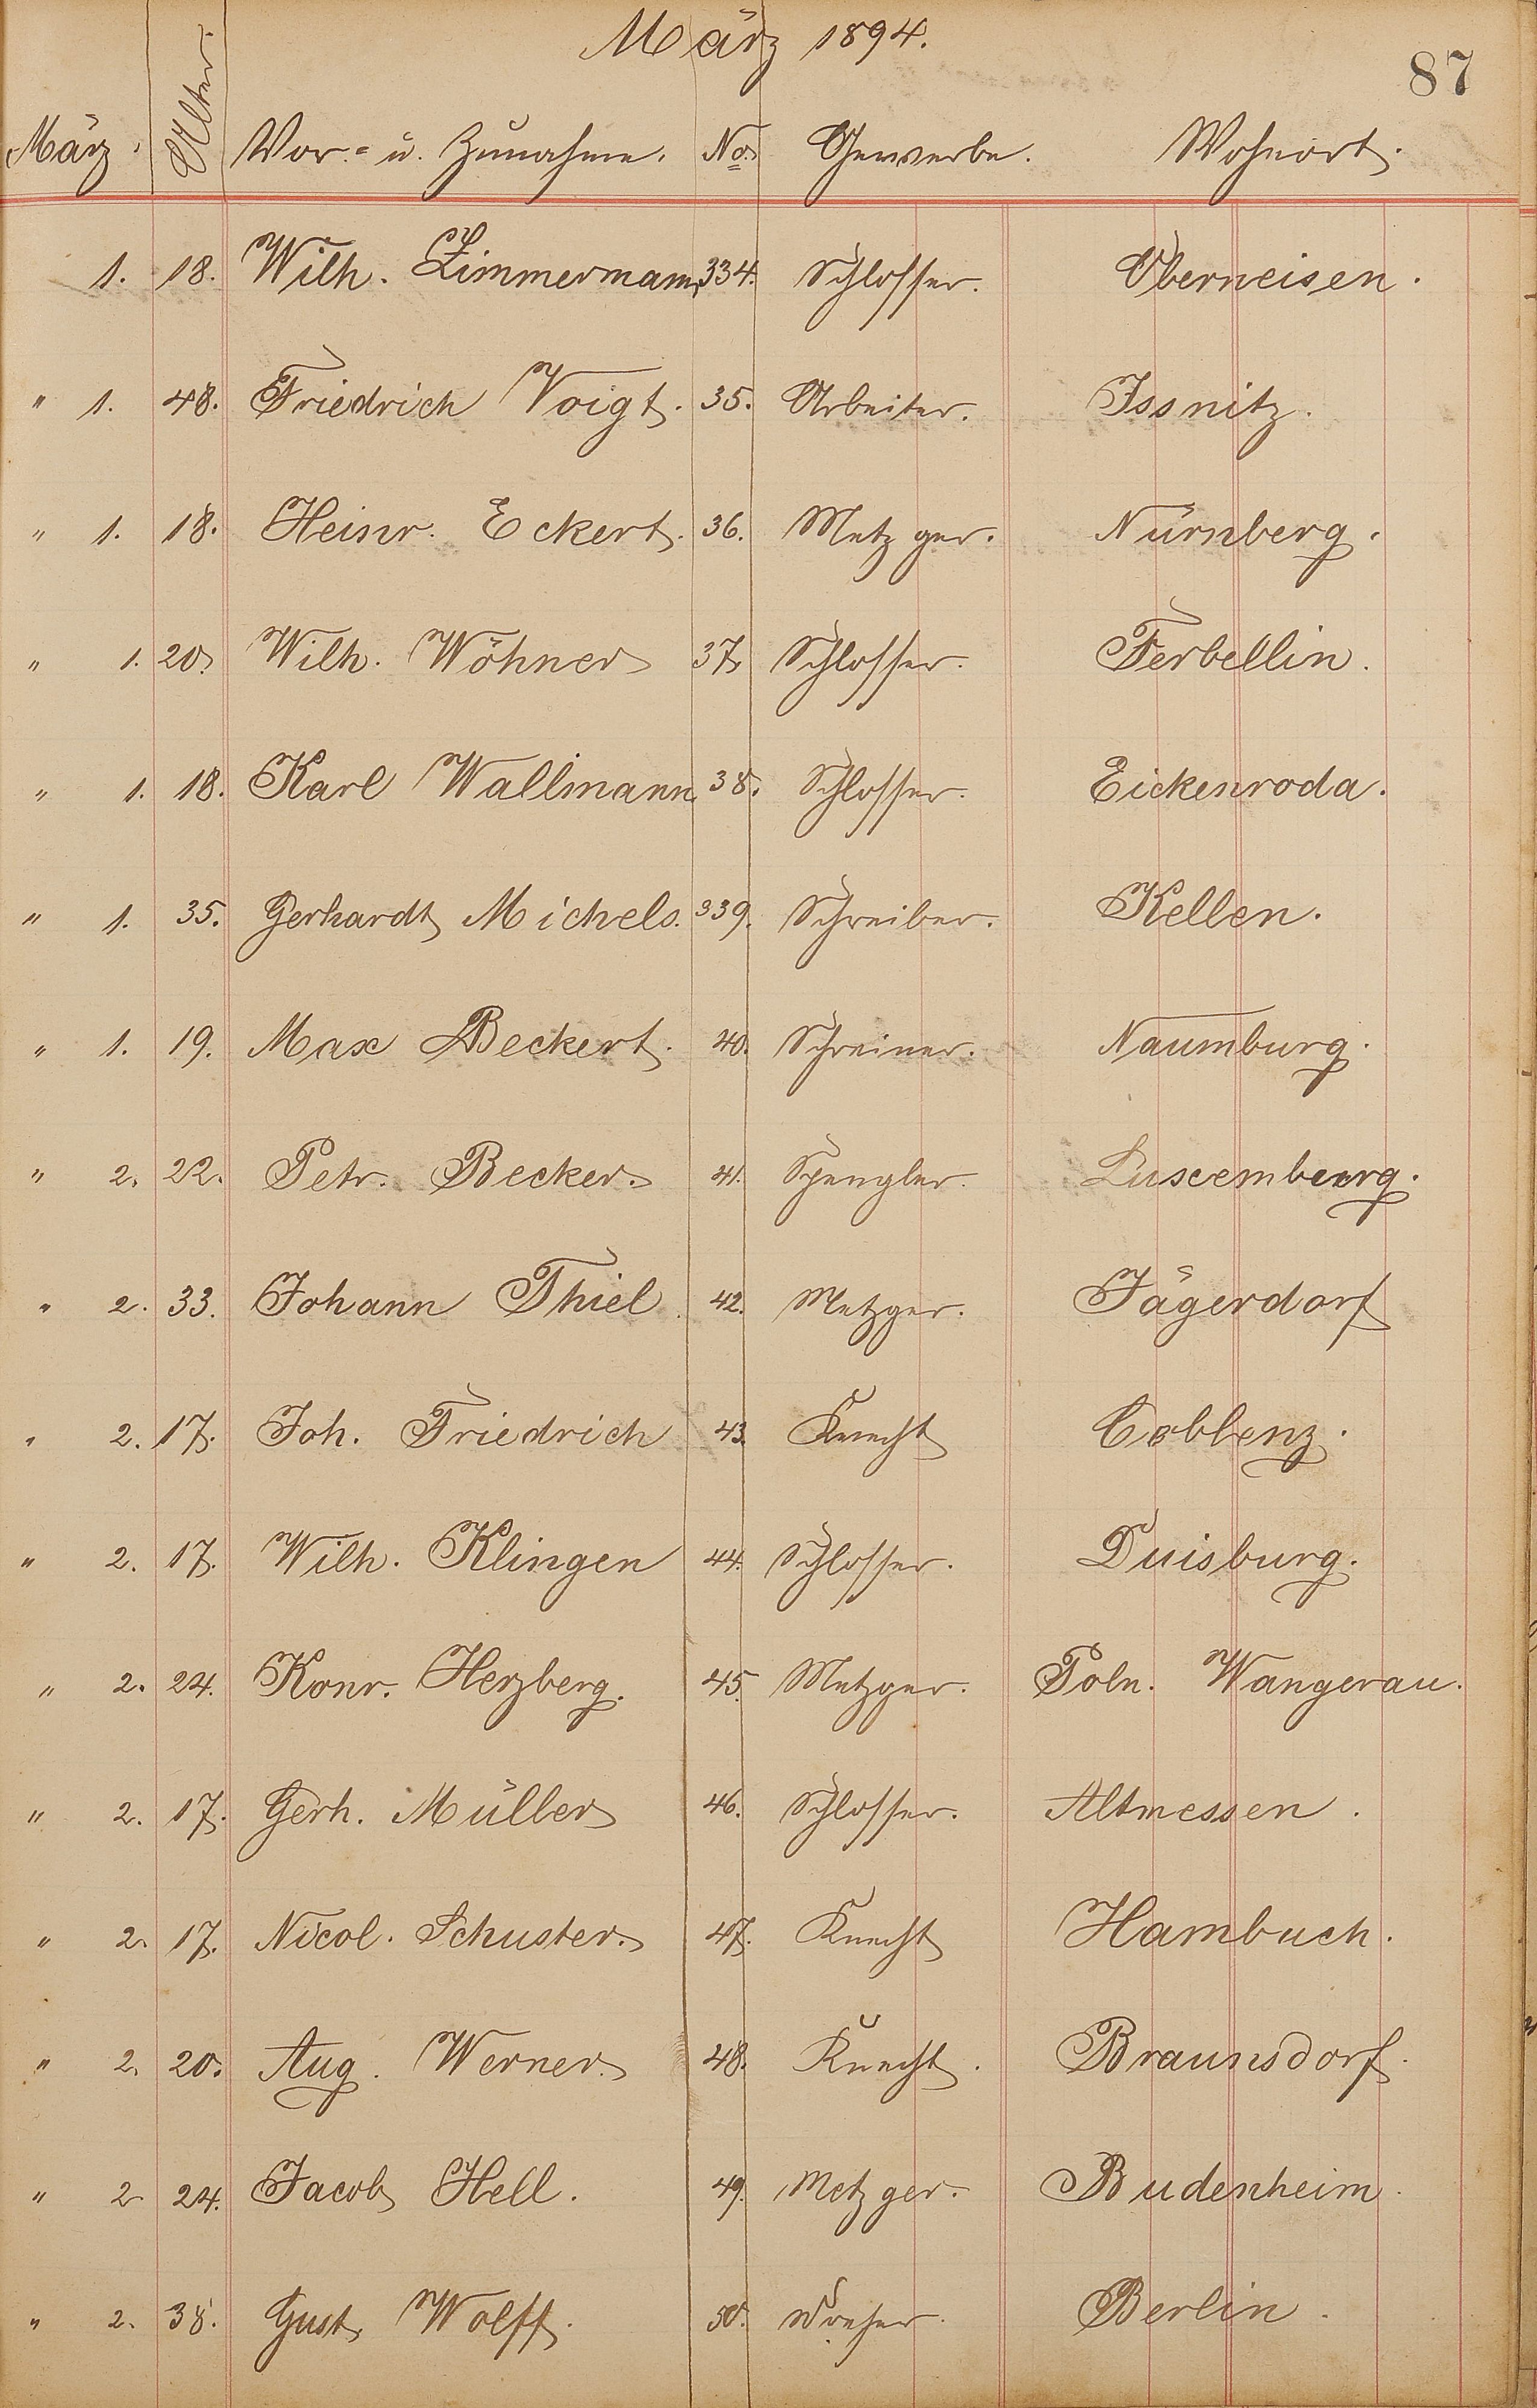 März 1894.
87
März. Alter. Vor- u. Zunahme. No. Gewerbe. Wohnort.
1. 18. Wilh. Zimmermann 334. Schlosser. Oberneisen.
" 1. 48. Friedrich Voigt. 35. Arbeiter. Issnitz.
" 1. 18. Heinr. Eckert. 36. Metzger. Nürnberg.
" 1. 20. Wilh. Wöhner 37. Schlosser. Ferbellin.
" 1. 18. Karl Wallmann. 38. Schlosser. Eickenroda.
" 1. 35. Gerhardt Michels. 339. Schreiber. Kellen.
" 1. 19. Max Beckert. 40. Schreiner. Naumburg.
" 2. 22. Petr. Becker. 41. Spengler. Luxemburg.
" 2. 33. Johann Thiel. 42. Metzger. Jägerdorf
" 2. 17. Joh. Friedrich 43. Knecht Coblenz.
" 2. 17. Wilh. Klingen 44. Schlosser. Duisburg.
" 2. 24. Konr. Herzberg. 45. Metzger. Poln. Wangerau.
" 2. 17. Gerh. Müller 46. Schlosser. Altmessen.
" 2. 17. Nicol. Schuster. 47. Knecht Hambuch.
" 2. 20. Aug. Werner. 48. Knecht. Braunsdorf.
" 2 24. Jacob Hell. 49. Metzger. Budenheim.
" 2. 38. Gust. Wolff. 50. Dreher. Berlin.